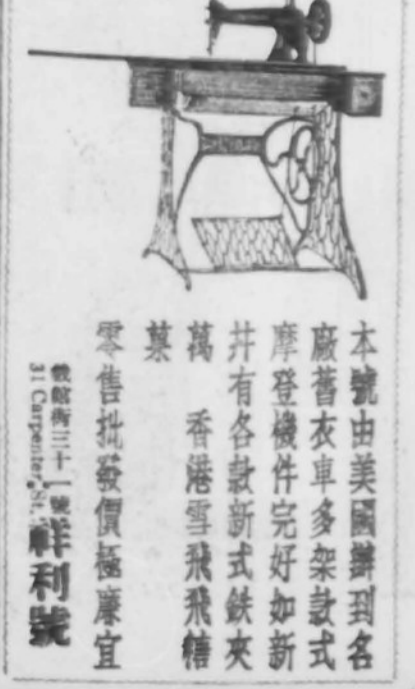 本號由美國辦到名
廠舊衣車多架款式
摩登機件完好如新
并有各款新式鉄夾
萬　香港雪飛飛糖
菓
零售批發價極廉宜
戲館街三十一號
31 Carpenter St.
祥利號